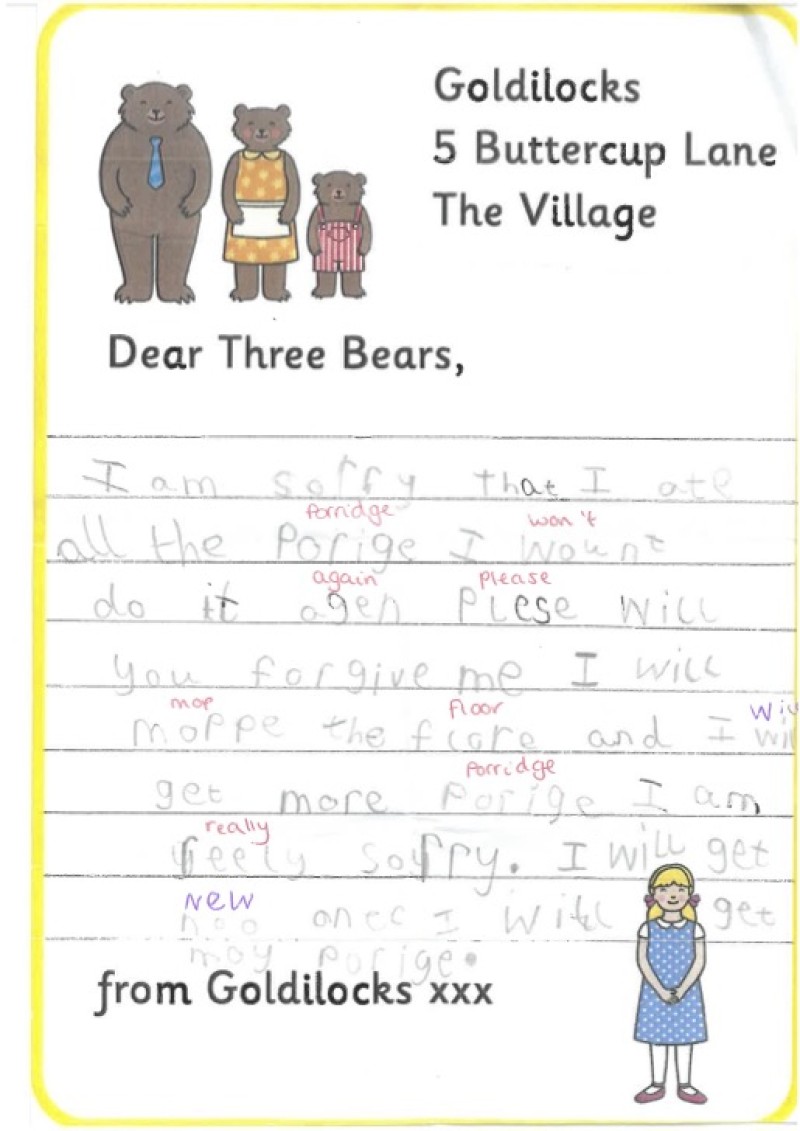 Goldilocks
5 Buttercup Lane
The Village
Dear Three Bears,
I am sorry that I ate
porridge won't
all the porige I wount
again please
do it agen plese will
you forgive me I will
mop floor will
moppe the flore and I will
porridge
get more porige I am
really
reely sorry. I will get
new
noo I will get
porige.
from Goldilocks xxx